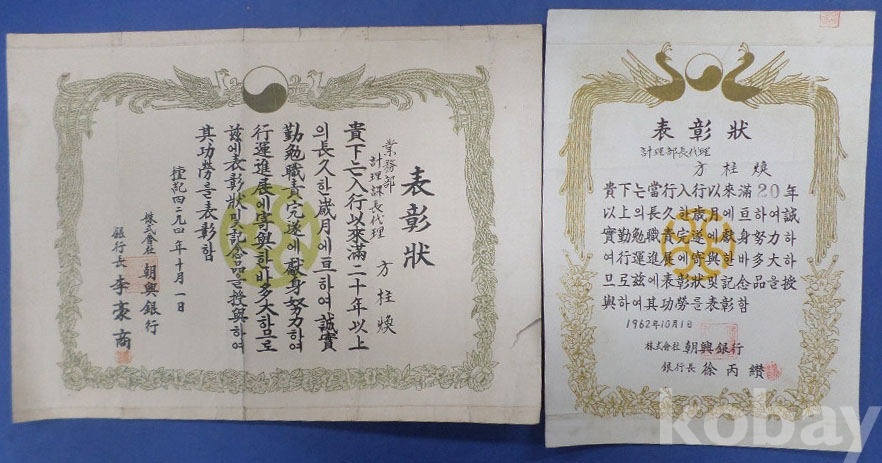 表彰狀
業務部
計理課長代理 方柱煥
貴下는入行以來滿二十年以上
의長久한歲月에亘하여誠實
勤勉職責完遂에獻身努力하여
行運進展에寄與한바多大하므로
玆에表彰狀및記念品을授與하여
其功勞를表彰함
檀紀四二九四年十月一日
株式會社 朝興銀行
銀行長 李豪商
表彰狀
計理部長代理
方柱煥
貴下는當行入行以來滿20年
以上의長久한歲月에亘하여誠
實勤勉職責完遂에獻身努力하
여行運進展에寄與한바多大하
므로玆에表彰狀및記念品을授
與하여其功勞를表彰함
1962年10月1日
株式會社 朝興銀行
銀行長 徐丙纘
kobay